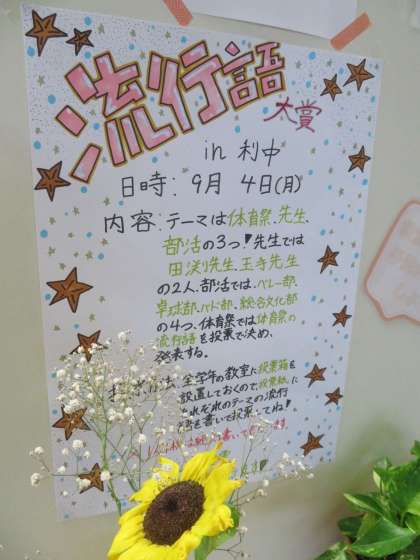 流行語
大賞
in 利中
日時: 9月 4日(月)
内容:テーマは体育祭、先生、
部活の3つ!先生では
田渕先生、玉寺先生
の2人、部活では、バレー部、
卓球部、バド部、総合文化部
の4つ、体育祭では体育祭の
流行語を投票で決め、
発表する。
法、全学年の教室に投票箱を
設置しておくので、投票紙に
それぞれのテーマの流行
語を書いて投票してね!